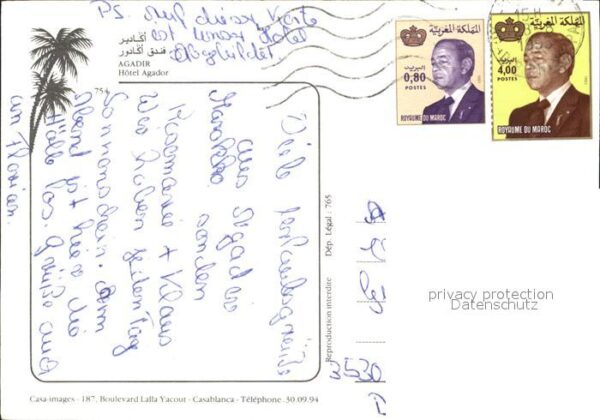 PS. Auf dieser Karte
ist unser Hotel
abgebildet
أكادير
فندق أكادور
AGADIR
Hôtel Agador
754
Viele Urlaubsgrüße
aus Agadir
Marokko
senden
Rosemarie + Klaus
Wir haben jeden Tag
Sonnenschein. Am
Abend ist hier die
Hölle los. Grüße auch
an Florian.
المملكة المغربية
البريد
0,80
POSTES
ROYAUME DU MAROC
المملكة المغربية
البريد
4,00
POSTES
ROYAUME DU MAROC
Reproduction interdite
Dép. Légal : 765
3530
D
privacy protection
Datenschutz
Casa-images - 187, Boulevard Lalla Yacout - Casablanca - Téléphone 30.09.94